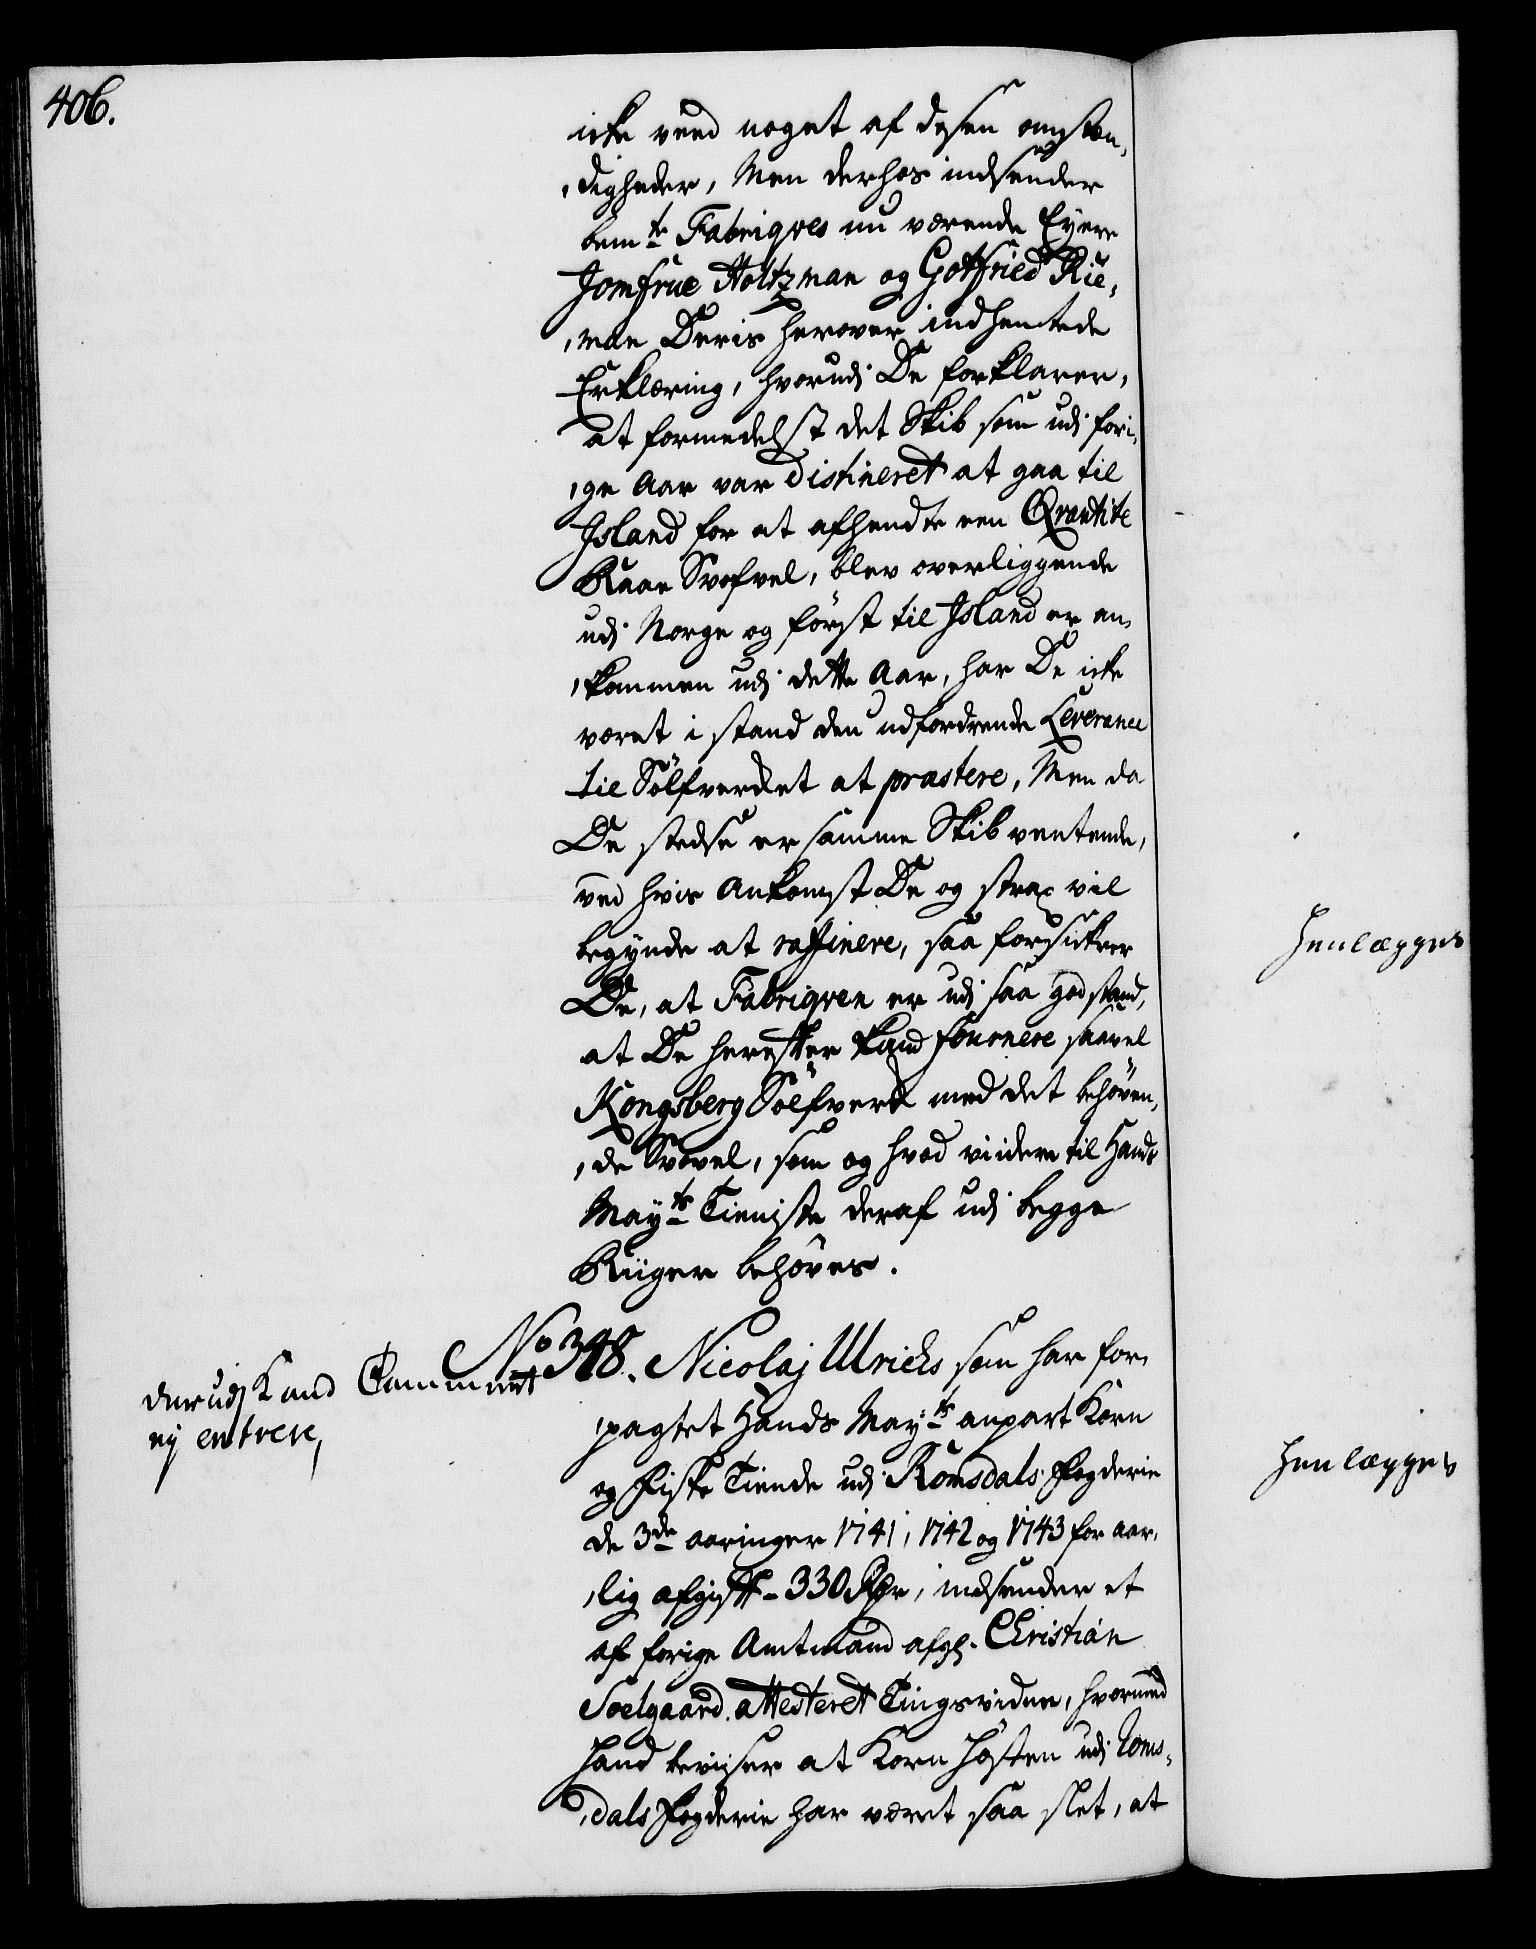 406.
icke veed noget af disse omstæn,
,digheder, Men derhos indsender
bemte Fabriqves nu værende Eyere
Jomfrue Holtzman og Gotfried Rie,
,man Deris herover indhentede
Erklæring, hvorudj De forklarer,
at formedelst det Skib som udj fori,
,ge Aar var distineret at gaa til
Jsland for at afhendte een Qvantite
Raae Svofvel, blev overliggende
udj Norge og först til Jsland er an,
,kommen udj dette Aar, har De icke
været i stand den udfordrende Leverance
til Sölfverket at præstere, Men da
De stedse er samme Skib ventende,
ved hvis Ankomst De og strax vil
begynde at raffinere, saa forsickrer
De, at Fabriqven er udj saa god stand,
at De herefter kand fournere saavel
Kongsberg Sölfverk med det behöven,
,de Svovel, som og hvad viidere til Hands
Mayts Tieniste deraf udj begge
Riiger behöves.
No 348. Nicolaj Ulrichs som har for,
,pagtet Hands Mayts anpart Korn
og Fiske Tiende udj Romsdals Fogderie
de 3de aaringer 1741, 1742 og 1743 for aar,
,lig afgift - 330 Rdr, indsender et
af forige Amtmand afg. Christian
Soelgaard attesteret Tingsvidne, hvormed
hand beviiser at Korn Hösten udj Roms,
,dals Fogderie har været saa slet, at
derudj Kand Cammeret
ej entrere,
henlægges
henlægges